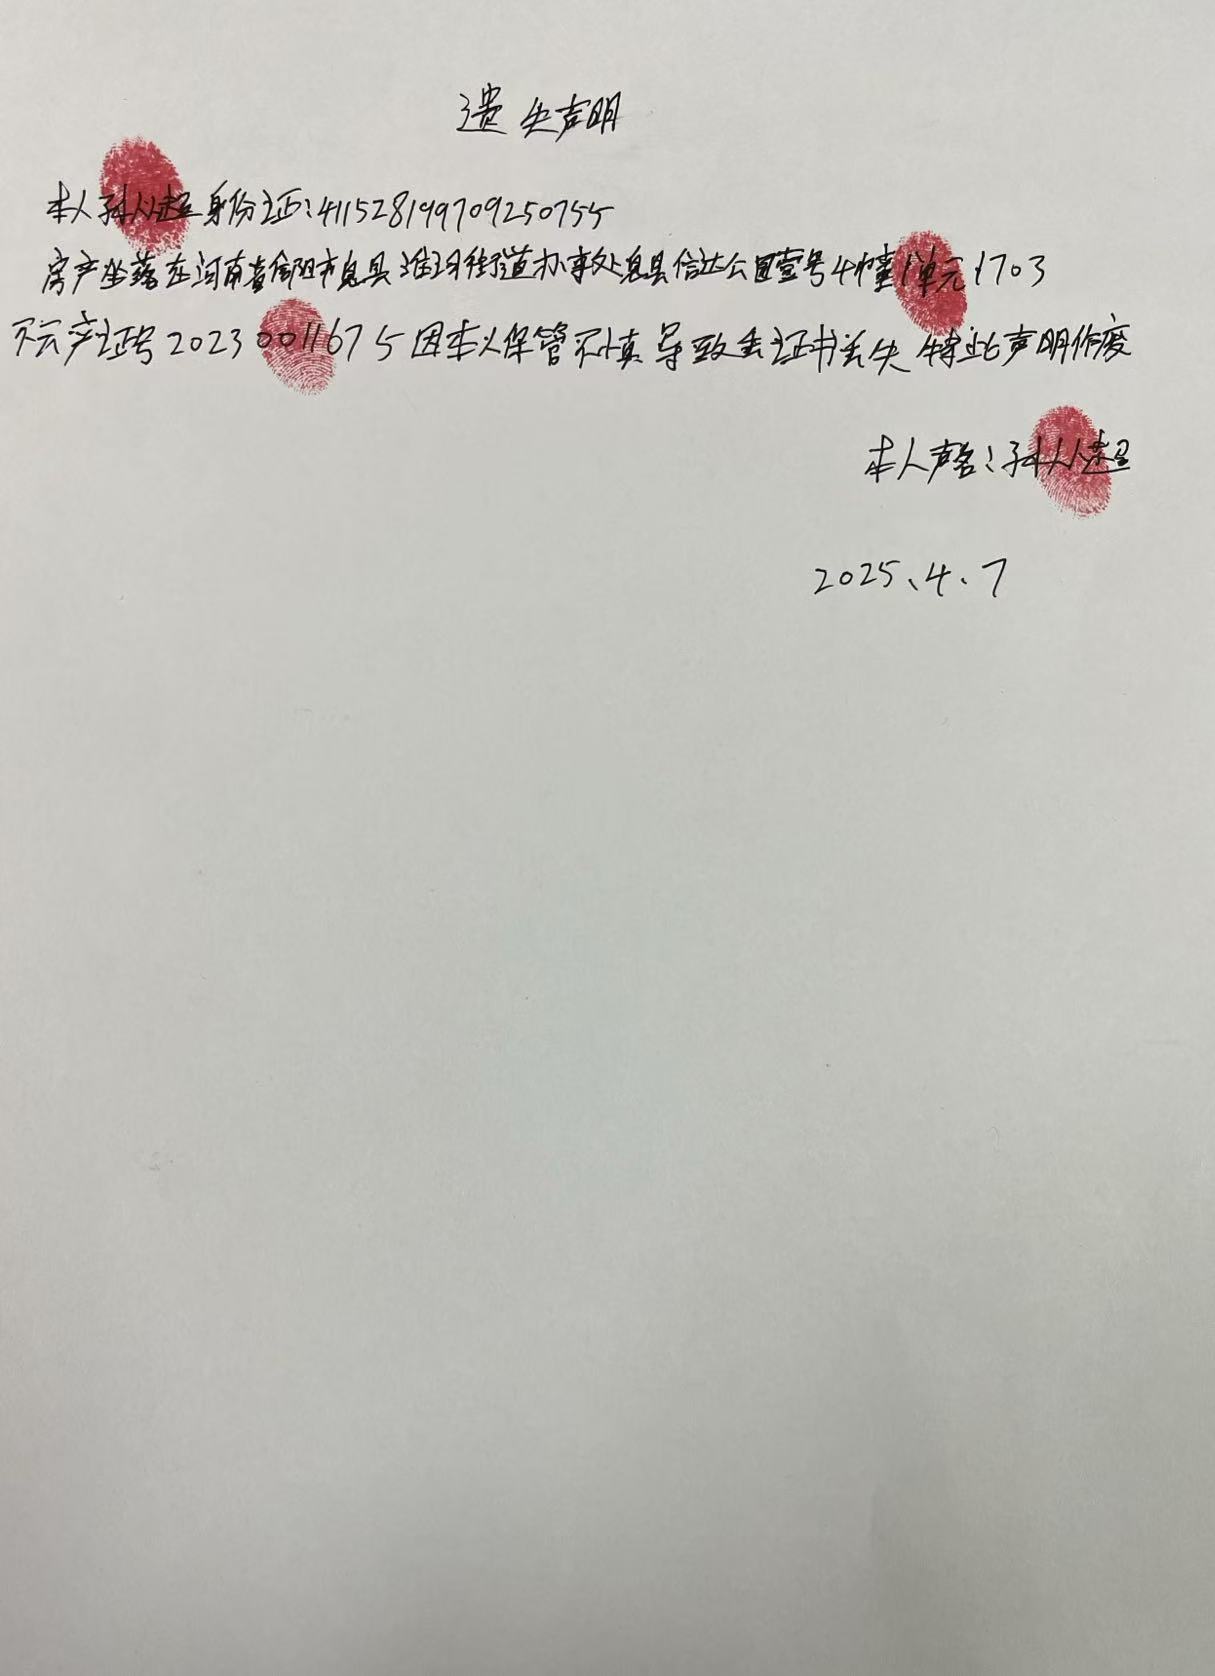 遗失声明
本人孙从超身份证:411528199709250755
房产坐落在河南省信阳市息县淮河街道办事处息县信达公园壹号4幢1单元1703
不动产证号20230011675因本人保管不慎导致丢证书丢失 特此声明作废
本人声名:孙从超
2025、4、7